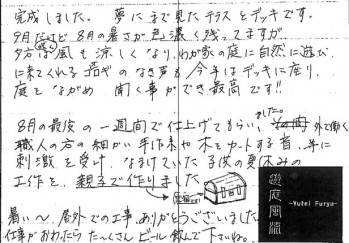 完成しました。夢にまで見たテラスとデッキです。
9月だけど8月の暑さが色濃く残ってますが
夕方は風も涼しくなり、わが家の庭に自然に遊び
に来てくれる のなき声も今年はデッキに座り、
庭をながめ 聞く事ができ最高です!!
8月の最後の一週間で仕上げてもらい、 ました。 外で働く
職人の方の細かい手作業や木をカートする音、
刺激を受け、なまけていた子供の夏休みの
工作を、親子で作りました
暑い〜屋外での工事、ありがとうございました
仕事がおわったらた〜くさんビール飲んで下さいね。
遊庭風流
-Yutei Furyu-